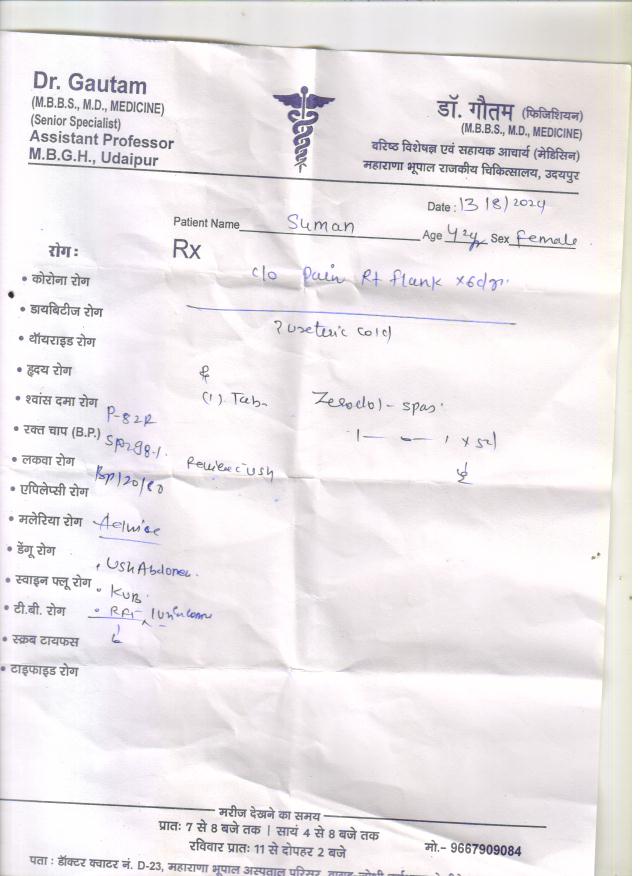 Dr. Gautam
(M.B.B.S., M.D., MEDICINE)
(Senior Specialist)
Assistant Professor
M.B.G.H., Udaipur
डॉ. गौतम (फिजिशियन)
(M.B.B.S., M.D., MEDICINE)
वरिष्ठ विशेषज्ञ एवं सहायक आचार्य (मेडिसिन)
महाराणा भूपाल राजकीय चिकित्सालय, उदयपुर
Date : 13/8/2024
Patient Name Suman
Age 42y Sex female
रोग :
Rx
c/o Pain Rt flank x6d
• कोरोना रोग
• डायबिटीज रोग
? ureteric
• थॉयराइड रोग
• हृदय रोग
• श्वांस दमा रोग
(1). Tab. Zerodol-spas
P-82
• रक्त चाप (B.P.)
1— — 1 x 5d
SpO2 98%
• लकवा रोग
Review c USG
BP 120/80
• एपिलेप्सी रोग
• मलेरिया रोग
Advice
• डेंगू रोग
• USG Abdomen
• स्वाइन फ्लू रोग
• KUB
• टी.बी. रोग
• RFT
• स्क्रब टायफस
• टाइफाइड रोग
मरीज देखने का समय
प्रातः 7 से 8 बजे तक | सायं 4 से 8 बजे तक
रविवार प्रातः 11 से दोपहर 2 बजे
मो.- 9667909084
पता : डॉक्टर क्वाटर नं. D-23, महाराणा भूपाल अस्पताल परिसर,